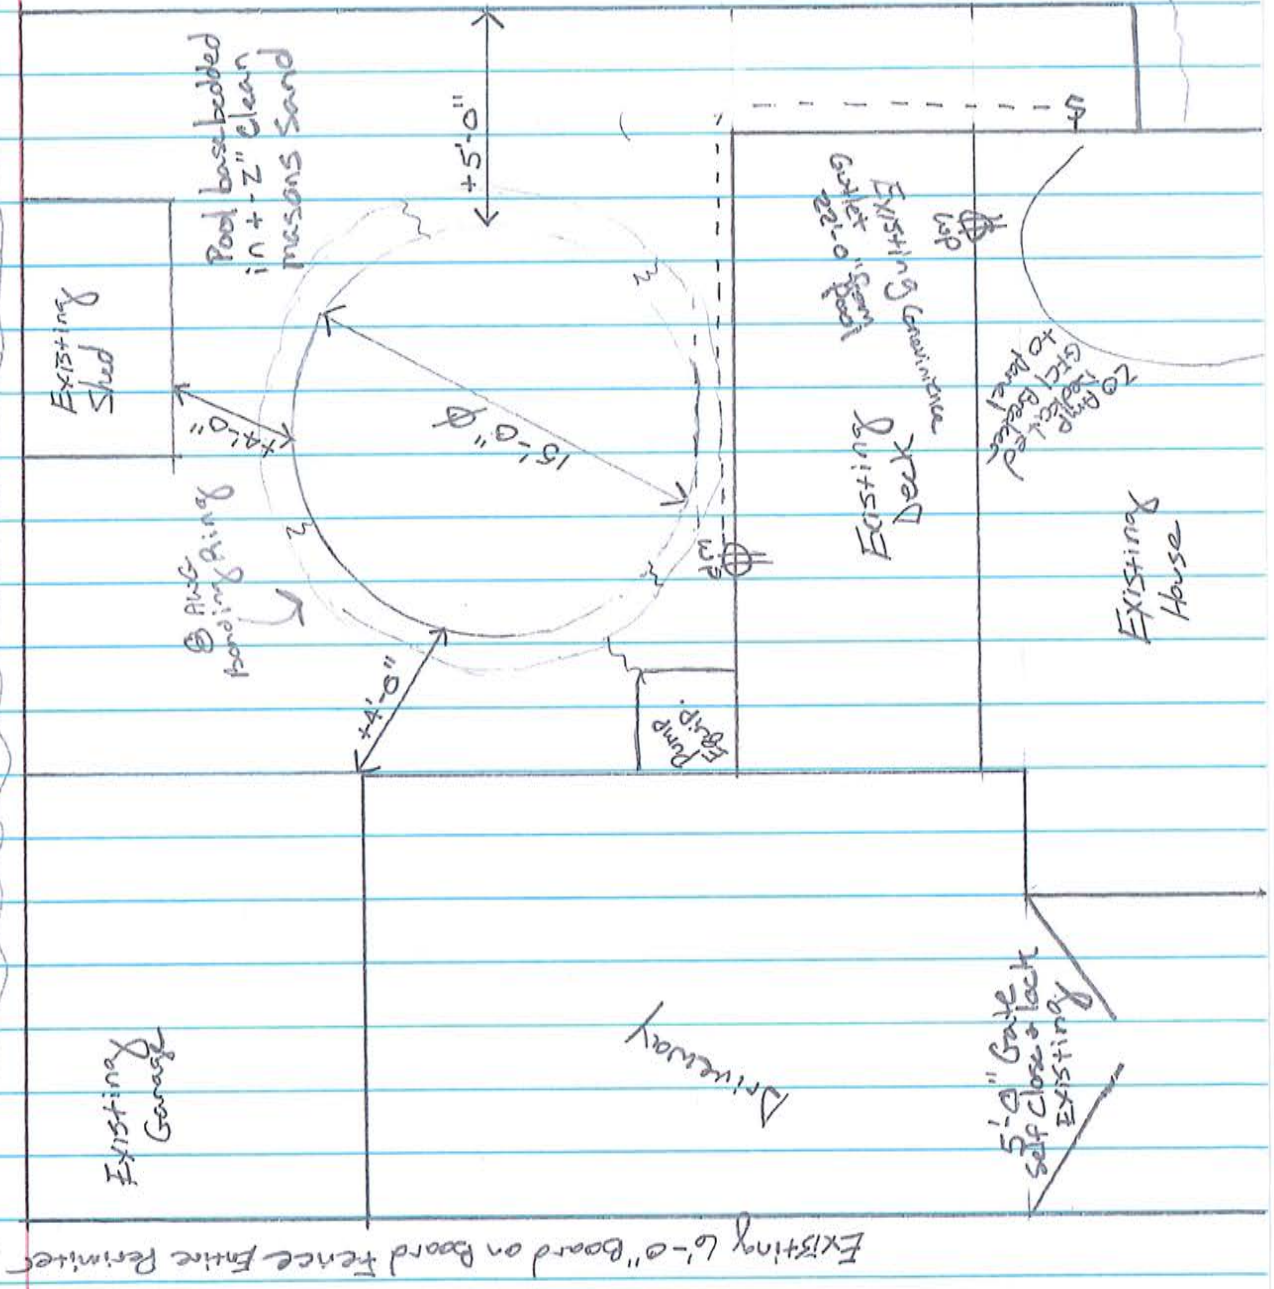 Pool base bedded
in +- 2" Clean
masons Sand
+5'-0"
Existing
Shed
+4'-0"
15'-0" Ø
8 AWG
Bonding Ring
+4'-0"
WP
Pump
Equip.
Existing Convinience
Outlet
22'-0" from
pool
WP
Existing
Deck
20 Amp
Dedicated
GFCI Breaker
to panel
Existing
House
Existing
Garage
Driveway
5'-0" Gate
Self Close + lock
Existing
Existing 6'-0" Board on Board Fence Entire Perimiter